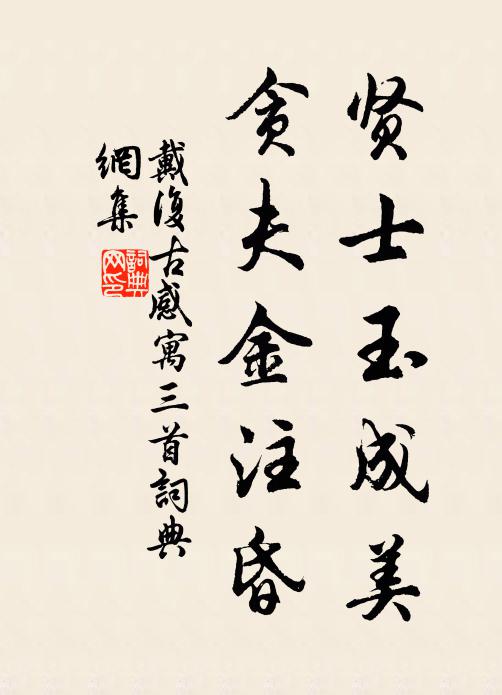 贤士玉成美
贪夫金注昏
戴復古感寓三首詞典
網集
詞典
网印